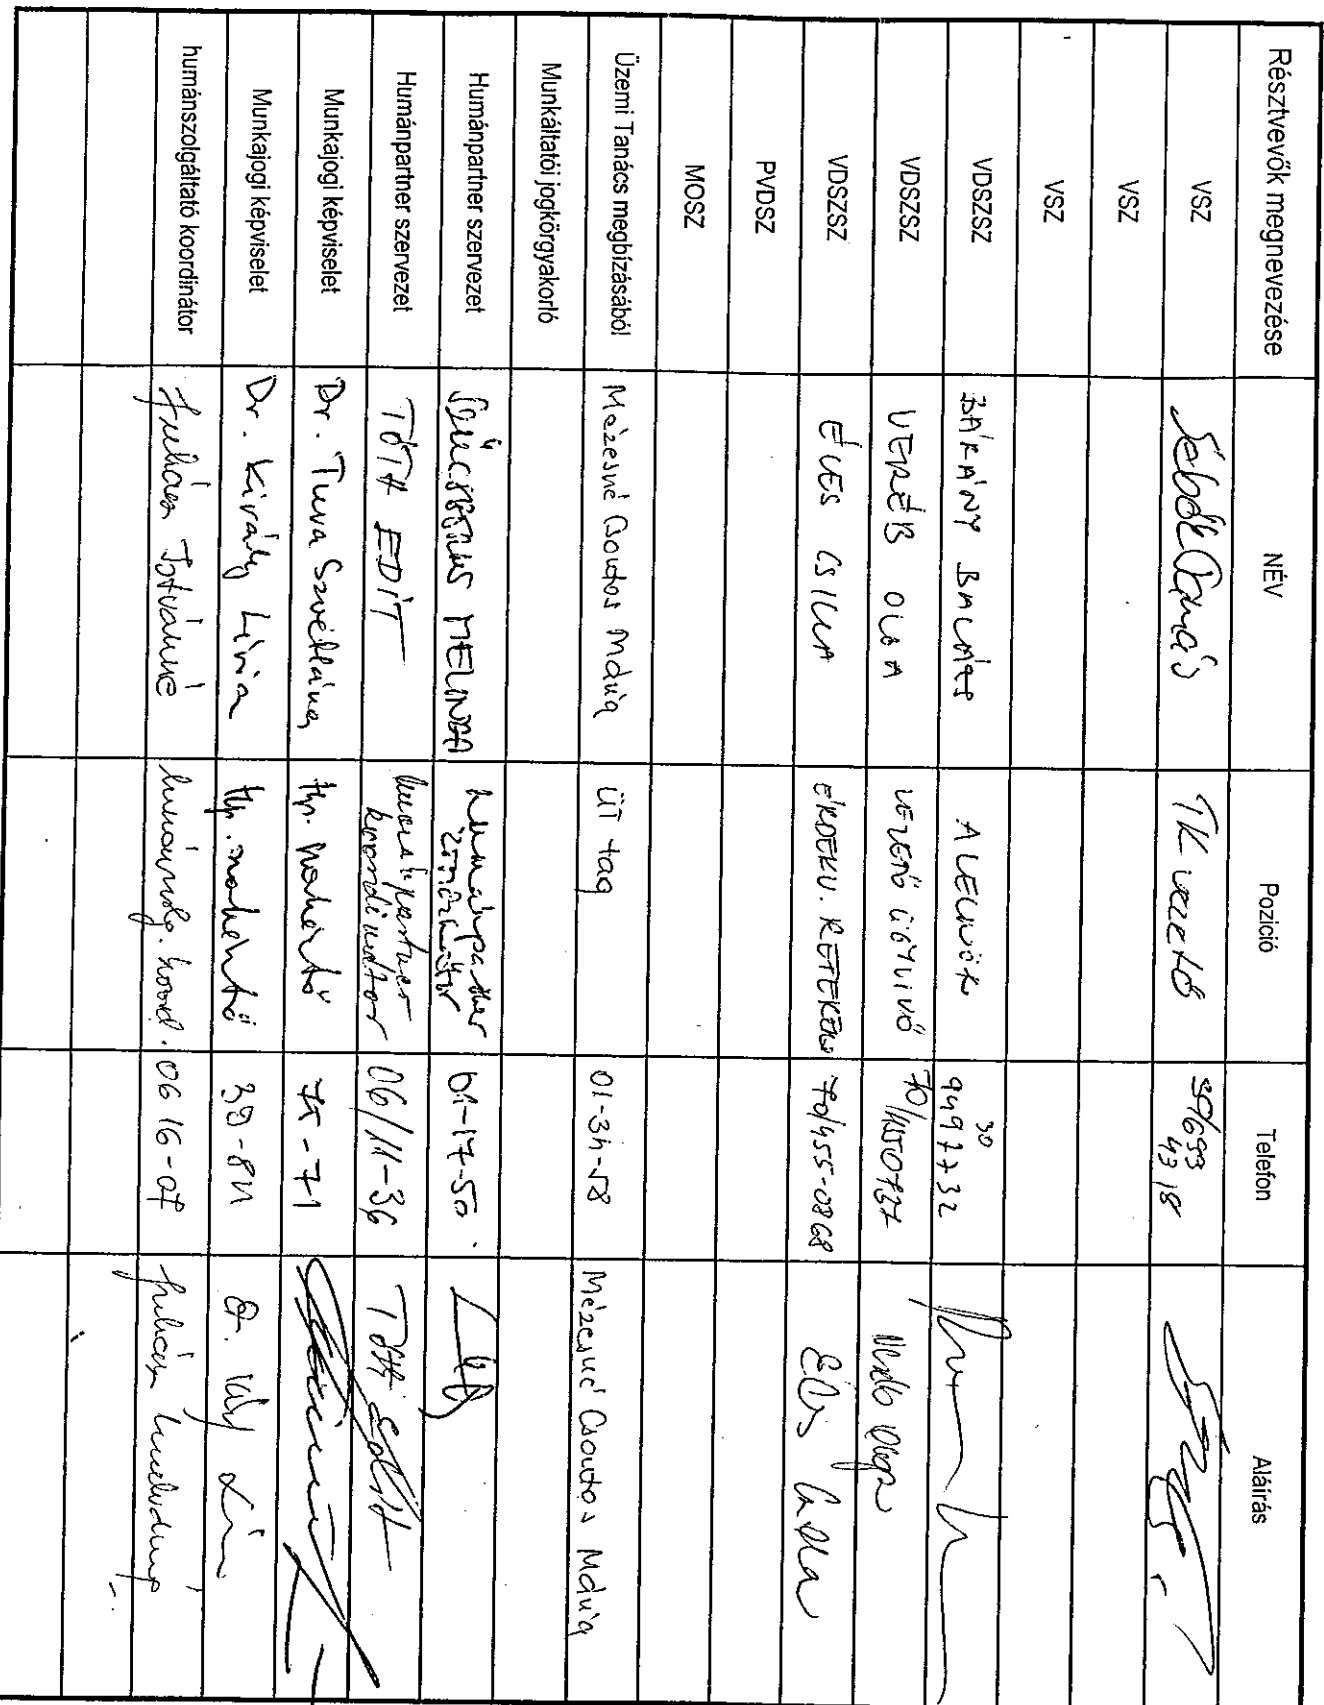 Résztvevők megnevezése NÉV Pozíció Telefon Aláírás
VSZ Sebők Tamás TK vezető 30/693 4318
VSZ
VSZ
VDSZSZ BÁRÁNY BALÁZS ALELNÖK 30 9497732
VDSZSZ VERÉB OLGA VEZETŐ ÜGYVIVŐ Veréb Olga
VDSZSZ ÉVES CSILLA ÉRDEKV. 70/455-0868 Éves Csilla
PVDSZ
MOSZ
Üzemi Tanács megbízásából Mézesné Csontos Mária ÜT tag 01-34-58 Mézesné Csontos Mária
Munkáltatói jogkörgyakorló
Humánpartner szervezet MELINDA humánpartner 01-17-50.
Humánpartner szervezet TÓTH EDIT humánpartner koordinátor 06/11-36 Tóth Edit
Munkajogi képviselet Dr. Tuva Szvetlána 75-71
Munkajogi képviselet Dr. Király Lívia 39-81
humánszolgáltató koordinátor Juhász Istvánné humánszolg. koord. 06 16-07 Juhász